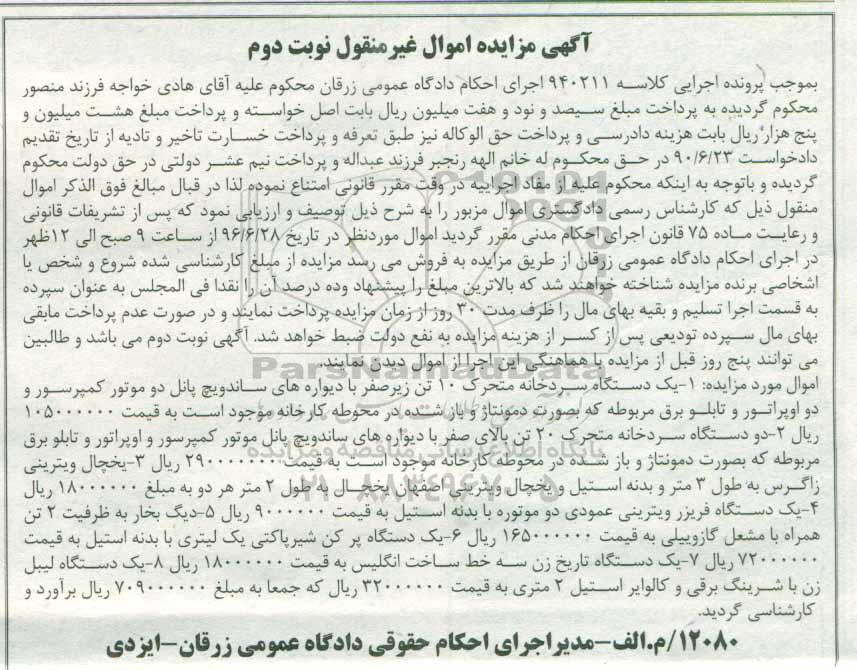 آگهی مزایده اموال غیرمنقول نوبت دوم
بموجب پرونده اجرایی کلاسه ۹۴۰۲۱۱ اجرای احکام دادگاه عمومی زرقان محکوم علیه آقای هادی خواجه فرزند منصور
محکوم گردیده به پرداخت مبلغ سیصد و نود و هفت میلیون ریال بابت اصل خواسته و پرداخت مبلغ هشت میلیون و
پنج هزار ریال بابت هزینه دادرسی و پرداخت حق الوکاله نیز طبق تعرفه و پرداخت خسارت تاخیر و تادیه از تاریخ تقدیم
دادخواست ۹۰/۶/۲۳ در حق محکوم له خانم الهه رنجبر فرزند عبداله و پرداخت نیم عشر دولتی در حق دولت محکوم
گردیده و باتوجه به اینکه محکوم علیه از مفاد اجراییه در وقت مقرر قانونی امتناع نموده لذا در قبال مبالغ فوق الذکر اموال
منقول ذیل که کارشناس رسمی دادگستری اموال مزبور را به شرح ذیل توصیف و ارزیابی نمود که پس از تشریفات قانونی
و رعایت ماده ۷۵ قانون اجرای احکام مدنی مقرر گردید اموال موردنظر در تاریخ ۹۶/۶/۲۸ از ساعت ۹ صبح الی ۱۲ظهر
در اجرای احکام دادگاه عمومی زرقان از طریق مزایده به فروش می رسد مزایده از مبلغ کارشناسی شده شروع و شخص یا
اشخاصی برنده مزایده شناخته خواهند شد که بالاترین مبلغ را پیشنهاد وده درصد آن را نقدا فی المجلس به عنوان سپرده
به قسمت اجرا تسلیم و بقیه بهای مال را ظرف مدت ۳۰ روز از زمان مزایده پرداخت نمایند و در صورت عدم پرداخت مابقی
بهای مال سپرده تودیعی پس از کسر از هزینه مزایده به نفع دولت ضبط خواهد شد. آگهی نوبت دوم می باشد و طالبین
می توانند پنج روز قبل از مزایده با هماهنگی این اجرا از اموال دیدن نمایند.
اموال مورد مزایده: ۱-یک دستگاه سردخانه متحرک ۱۰ تن زیرصفر با دیواره های ساندویچ پانل دو موتور کمپرسور و
دو اوپراتور و تابلو برق مربوطه که بصورت دمونتاژ و باز شده در محوطه کارخانه موجود است به قیمت ۱۰۵۰۰۰۰۰۰
ریال ۲-دو دستگاه سردخانه متحرک ۲۰ تن بالای صفر با دیواره های ساندویچ پانل موتور کمپرسور و اوپراتور و تابلو برق
مربوطه که بصورت دمونتاژ و باز شده در محوطه کارخانه موجود است به قیمت ۲۹۰۰۰۰۰۰۰ ریال ۳-یخچال ویترینی
زاگرس به طول ۳ متر و بدنه استیل و یخچال ویترینی اصفهان یخچال به طول ۲ متر هر دو به مبلغ ۱۸۰۰۰۰۰۰ ریال
۴-یک دستگاه فریزر ویترینی عمودی دو موتوره با بدنه استیل به قیمت ۹۰۰۰۰۰۰ ریال ۵-دیگ بخار به ظرفیت ۲ تن
همراه با مشعل گازوییلی به قیمت ۱۶۵۰۰۰۰۰۰ ریال ۶-یک دستگاه پر کن شیرپاکتی یک لیتری با بدنه استیل به قیمت
۷۲۰۰۰۰۰۰ ریال ۷-یک دستگاه تاریخ زن سه خط ساخت انگلیس به قیمت ۱۸۰۰۰۰۰۰ ریال ۸-یک دستگاه لیبل
زن با شرینگ برقی و کالوایر استیل ۲ متری به قیمت ۳۲۰۰۰۰۰۰ ریال که جمعا به مبلغ ۷۰۹۰۰۰۰۰۰ ریال برآورد و
کارشناسی گردید.
۱۲۰۸۰/م.الف-مدیراجرای احکام حقوقی دادگاه عمومی زرقان-ایزدی
ParsNamadData
پایگاه اطلاع رسانی مناقصه و مزایده
۰۲۱-۸۸۳۴۹۶۷۰-۵